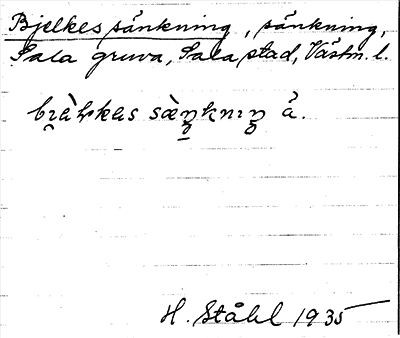 Bjelkes sänkning, sänkning,
Sala gruva, Sala stad, Västm. l.
bi̯àl̥kas sæ̀ŋknıŋ å.
H. Ståhl 1935